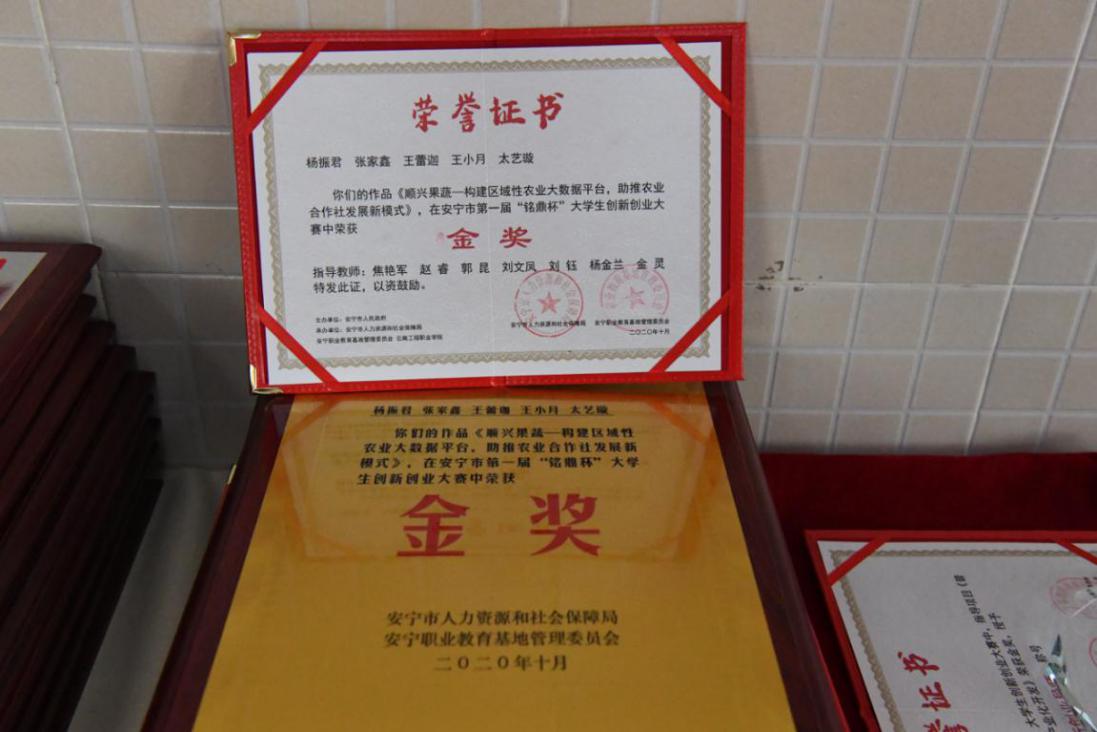 荣誉证书
杨振君 张家鑫 王蕾迦 王小月 太艺璇
你们的作品《顺兴果蔬—构建区域性农业大数据平台，助推农业
合作社发展新模式》，在安宁市第一届“铭鼎杯”大学生创新创业大
赛中荣获
金奖
指导教师：焦艳军 赵睿 郭昆 刘文凤 刘钰 杨金兰 金灵
特发此证，以资鼓励。
主办单位：安宁市人民政府
承办单位：安宁市人力资源和社会保障局
安宁职业教育基地管理委员会 云南工程职业学院
安宁市人力资源和社会保障局 安宁职业教育基地管理委员会
二〇二〇年十月
杨振君 张家鑫 王蕾迦 王小月 太艺璇
你们的作品《顺兴果蔬—构建区域性
农业大数据平台，助推农业合作社发展新
模式》，在安宁市第一届“铭鼎杯”大学
生创新创业大赛中荣获
金奖
安宁市人力资源和社会保障局
安宁职业教育基地管理委员会
二〇二〇年十月
荣誉证书
大学生创新创业大赛中，指导项目《
产业化开发》荣获金奖，授予
称号